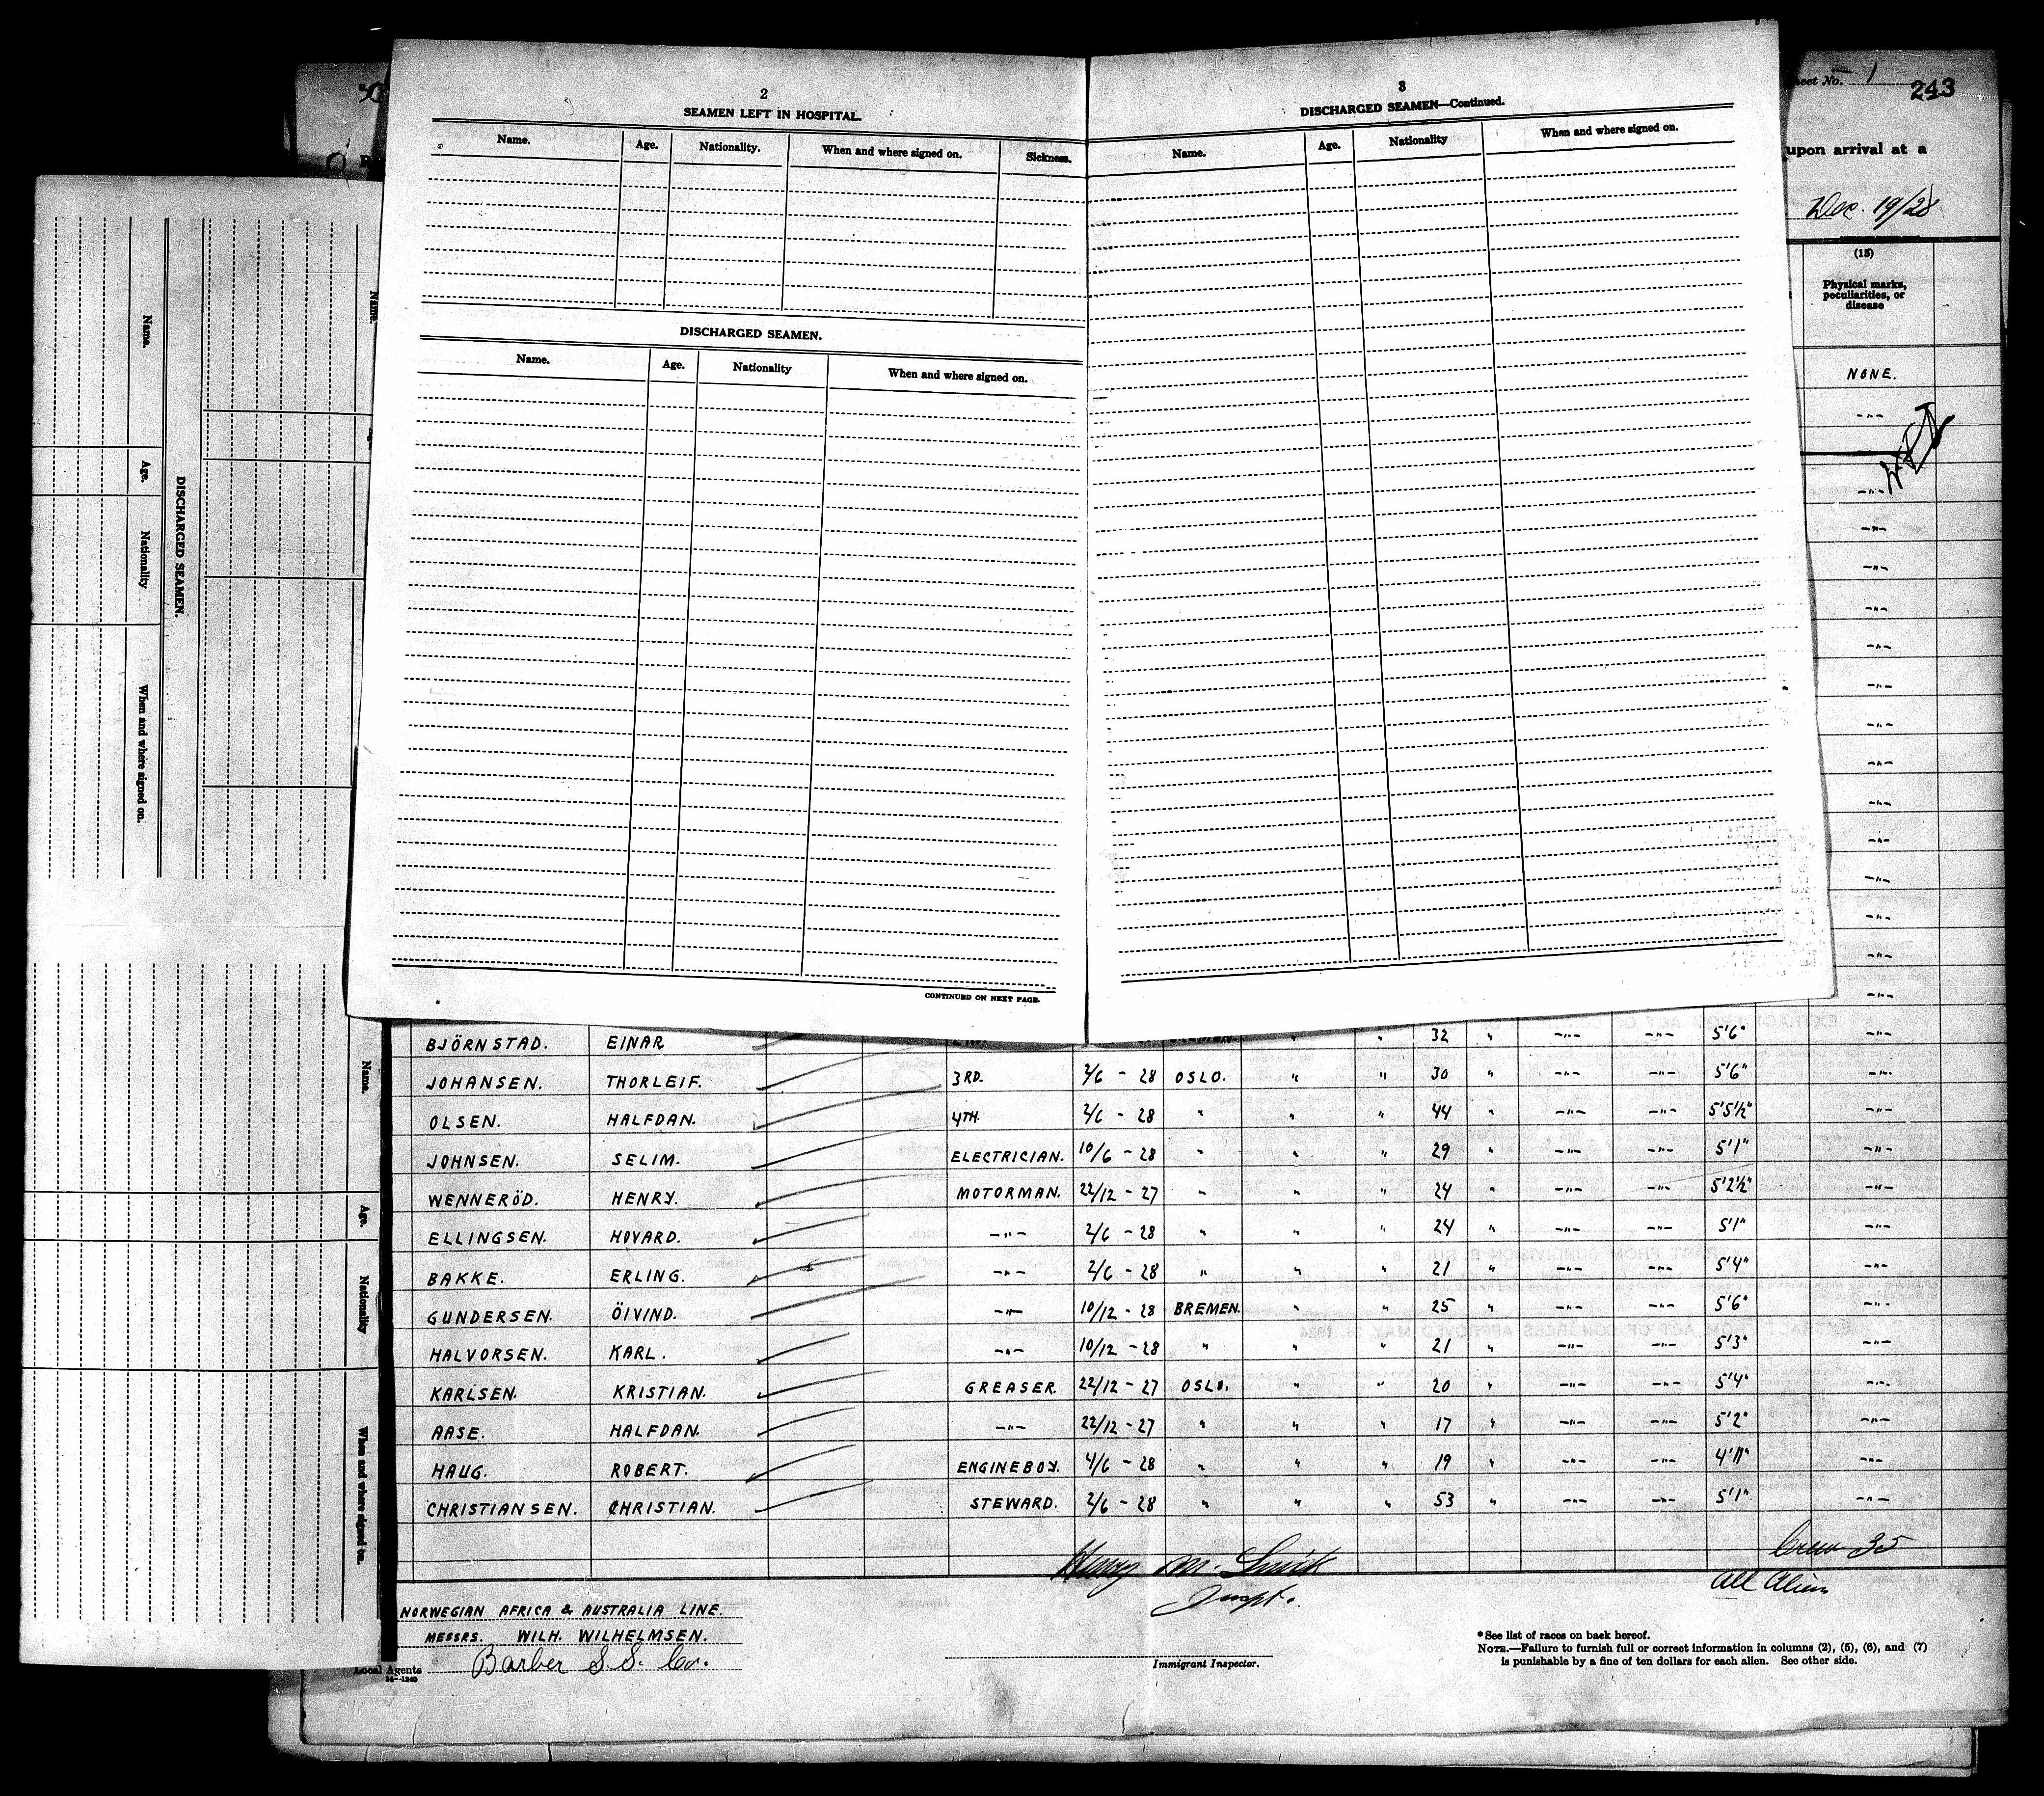 Sheet No. 1
243
upon arrival at a
Dec. 19/28
(15)
Physical marks,
peculiarities, or
disease
NONE.
2
SEAMEN LEFT IN HOSPITAL.
Name. Age. Nationality. When and where signed on. Sickness.
DISCHARGED SEAMEN.
Name. Age. Nationality When and where signed on.
CONTINUED ON NEXT PAGE.
3
DISCHARGED SEAMEN—Continued.
Name. Age. Nationality When and where signed on.
DISCHARGED SEAMEN.
Name. Age. Nationality When and where signed on.
Name.
Name. Age. Nationality When and where signed on.
BJÖRNSTAD. EINAR 32 " -"- -"- 5'6" -"-
JOHANSEN. THORLEIF. 3RD. 2/6 - 28 OSLO. " " 30 " -"- -"- 5'6" -"-
OLSEN. HALFDAN. 4TH. 2/6 - 28 " " " 44 " -"- -"- 5'5½" -"-
JOHNSEN. SELIM. ELECTRICIAN. 10/6 - 28 " " " 29 " -"- -"- 5'1" -"-
WENNERÖD. HENRY. MOTORMAN. 22/12 - 27 " " " 24 " -"- -"- 5'2½" -"-
ELLINGSEN. HOVARD. -"- 2/6 - 28 " " " 24 " -"- -"- 5'1" -"-
BAKKE. ERLING. -"- 2/6 - 28 " " " 21 " -"- -"- 5'4" -"-
GUNDERSEN. ÖIVIND. -"- 10/12 - 28 BREMEN. " " 25 " -"- -"- 5'6" -"-
HALVORSEN. KARL. -"- 10/12 - 28 " " " 21 " -"- -"- 5'3" -"-
KARLSEN. KRISTIAN. GREASER. 22/12 - 27 OSLO. " " 20 " -"- -"- 5'4" -"-
AASE. HALFDAN. -"- 22/12 - 27 " " " 17 " -"- -"- 5'2" -"-
HAUG. ROBERT. ENGINEBOY. 4/6 - 28 " " " 19 " -"- -"- 4'11" -"-
CHRISTIANSEN. CHRISTIAN. STEWARD. 2/6 - 28 " " " 53 " -"- -"- 5'1" -"-
Crew 35
All Alien
Henry M.
Inspt.
NORWEGIAN AFRICA & AUSTRALIA LINE.
MESSRS. WILH. WILHELMSEN.
Barber S.S. Co.
Local Agents
14—1240
Immigrant Inspector.
*See list of races on back hereof.
NOTE.—Failure to furnish full or correct information in columns (2), (5), (6), and (7)
is punishable by a fine of ten dollars for each alien. See other side.